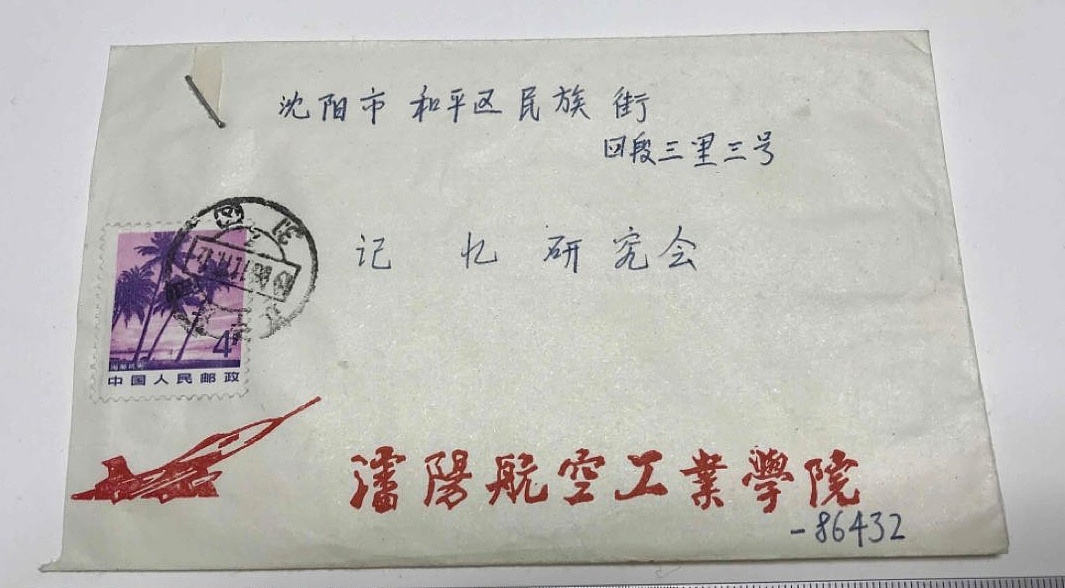 沈阳市 和平区 民族 街
四段三里三号
记 忆 研 究 会
4
中国人民邮政
瀋陽航空工業學院
-86432